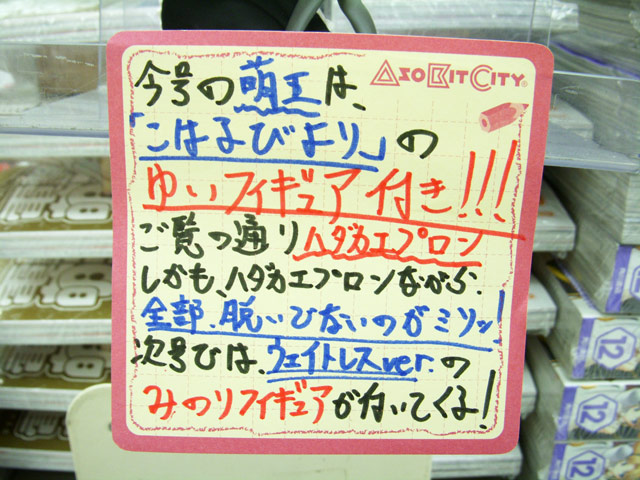 AsoBitCity
今号の萌王は、
「こはるびより」の
ゆいフィギュア付き!!!
ご覧の通りハダカエプロン
しかも、ハダカエプロンながら、
全部、脱いでないのがミソッ!
次号では、ウェイトレスver.の
みのりフィギュアが付いてくる!
12
12